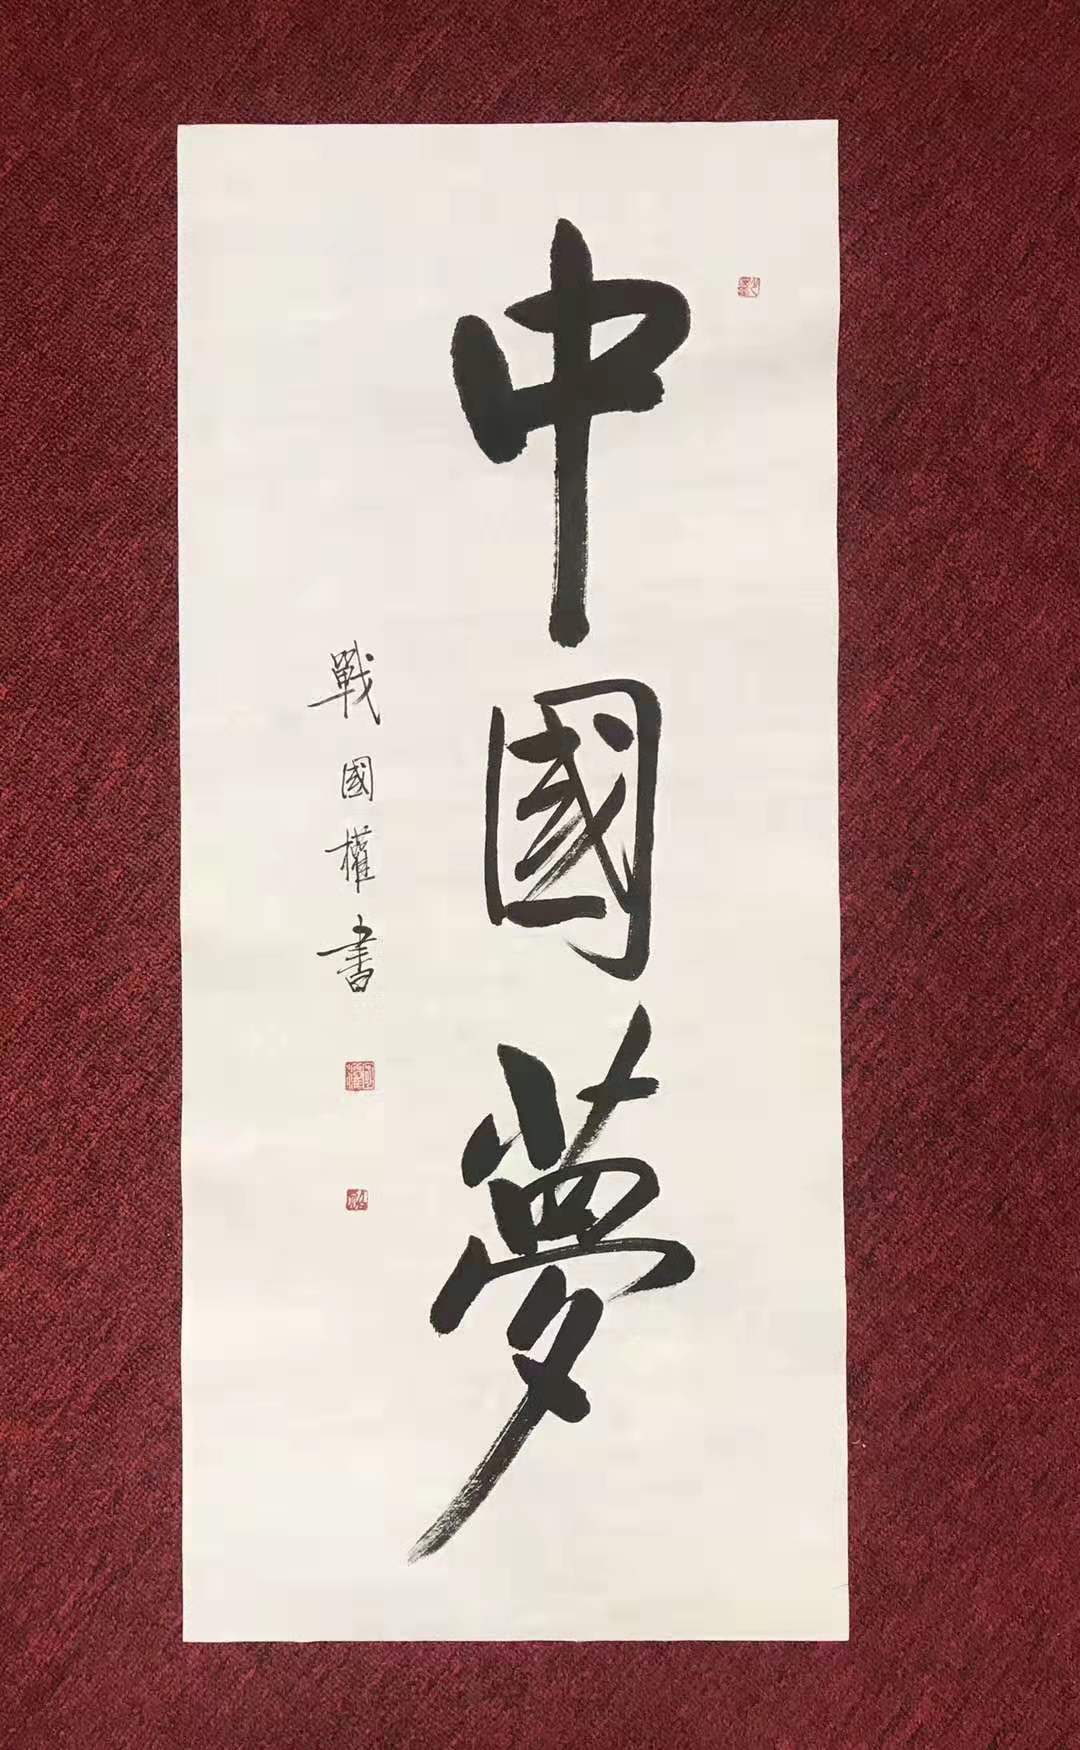 中國夢
戰國權書